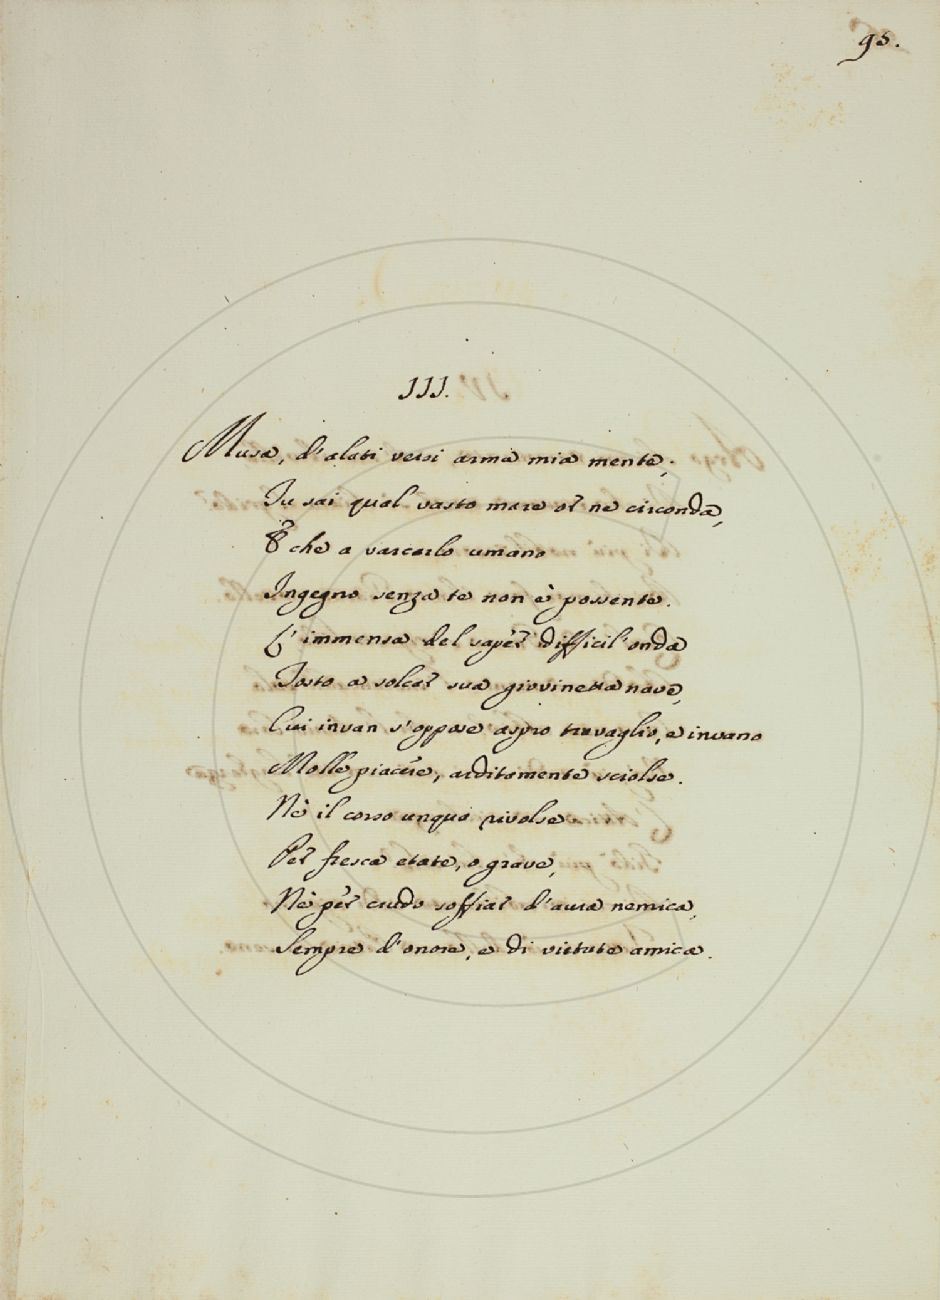 95.
III.
Musa, d'alati versi arma mia mente,
Tu sai qual vasto mare or ne circonda,
E che a varcarlo umano
Ingegno senza te non è possente.
L'immensa del saper difficil'onda
Tosto a solcar sua giovinetta nave,
Cui invan s'oppose aspro travaglio, e invano
Molle piacere, arditamente sciolse.
Nè il corso unqua rivolse
Per fresca etate, o grave,
Nè per crudo soffiar d'aura nemica,
Sempre d'onore, e di virtute amica.